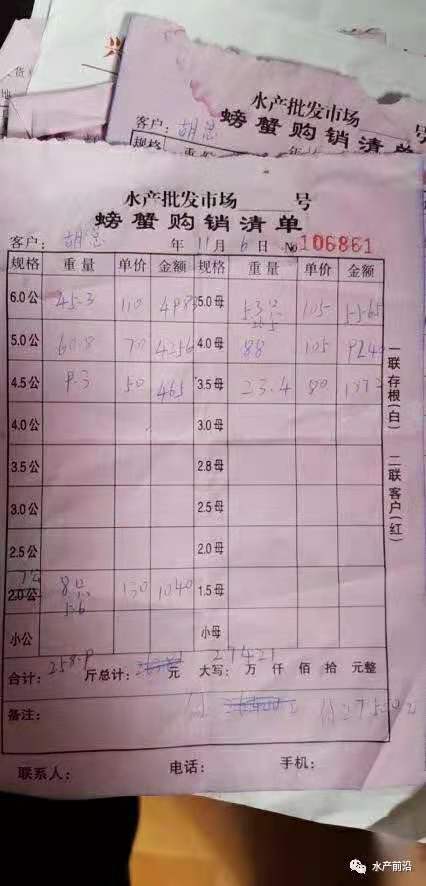 水产批发市场____号
客户: 胡总 螃蟹购销清单
规格 重量
水产批发市场____号
螃蟹购销清单
客户: 胡总 年 11 月 6 日 № 106861
规格 重量 单价 金额 规格 重量 单价 金额
6.0公 45.3 110 4983 5.0母 53 105 5565
5.0公 60.8 70 4256 4.0母 88 105 9240
4.5公 9.3 50 465 3.5母 23.4 80 1872
4.0公 3.0母
3.5公 2.8母
3.0公 2.5母
2.5公 2.0母
2.0公 8 130 1040 1.5母
小公 小母
合计: 258.9 斤总计: 元 大写: 万 仟 佰 拾 元整
27421
备注:
联系人: 电话: 手机:
一联存根(白) 二联客户(红)
水产前沿